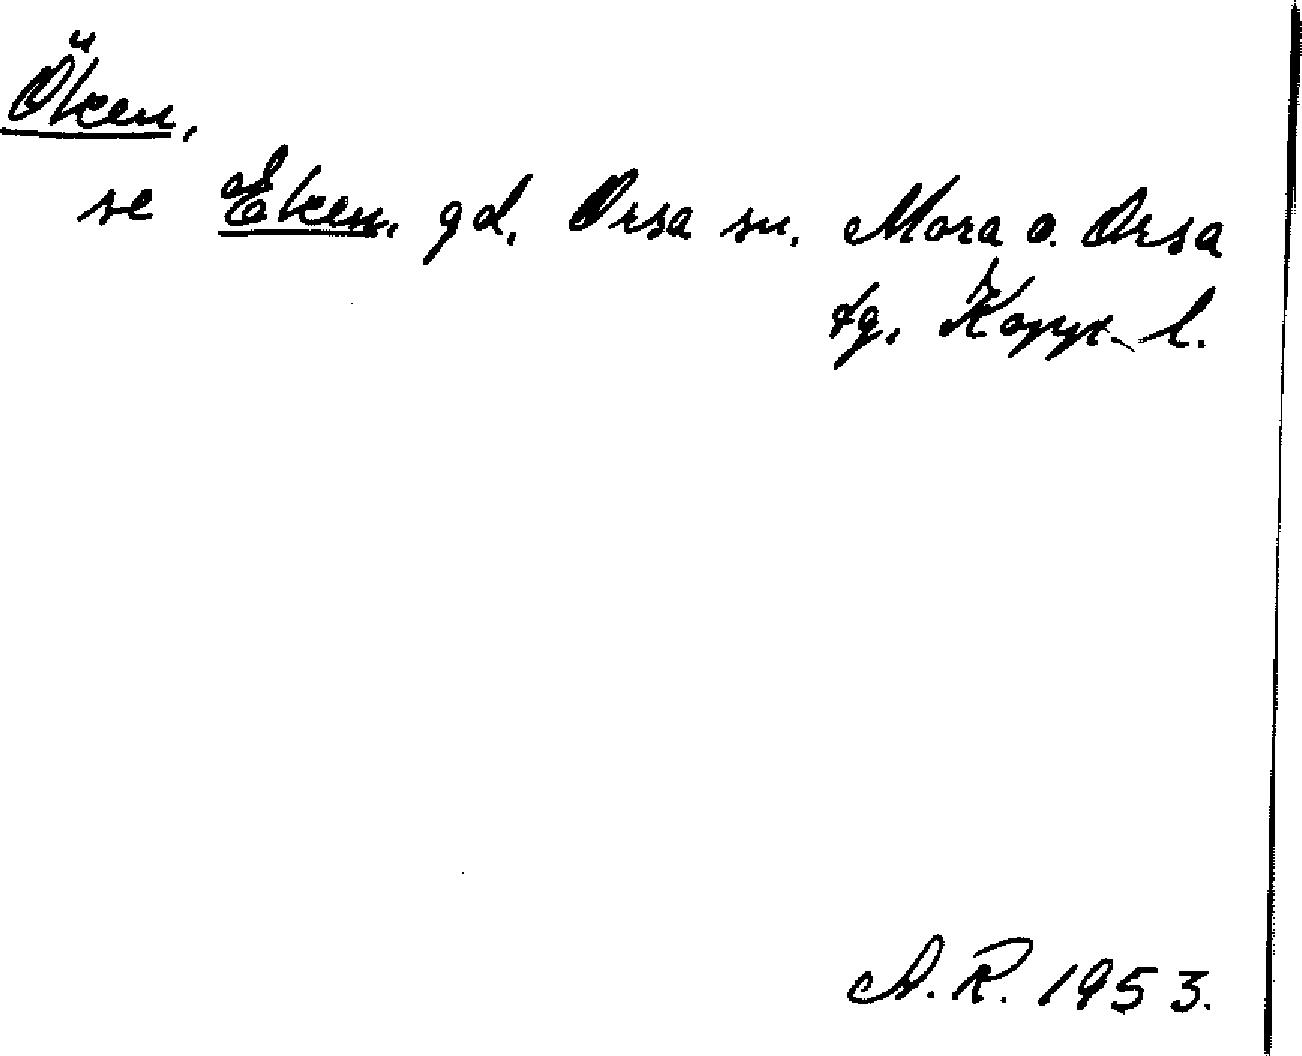 Öken,
se Eken, gd, Orsa sn, Mora o. Orsa
tg, Kopp. l.
A.R. 1953.